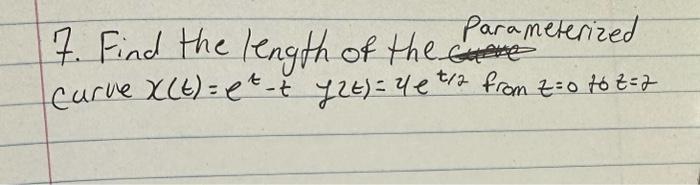 7. Find the length of the Parameterized
curve x(t) = e^t - t y(t) = 4e^t/2 from t=0 to t=2